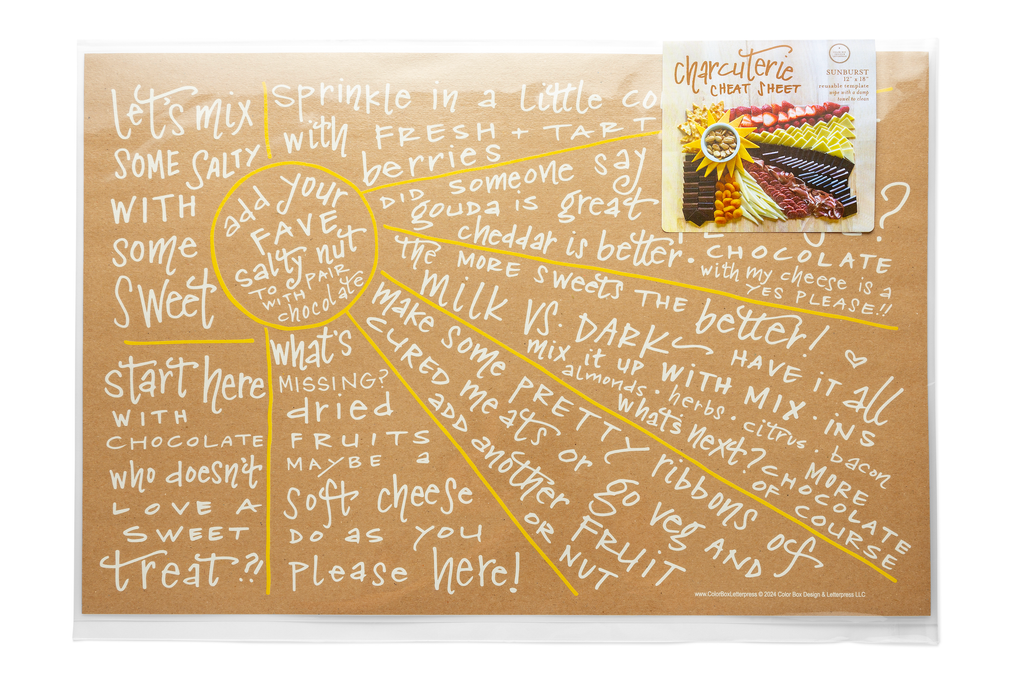 let's mix
SOME SALTY
WITH
some
Sweet
start here
WITH
CHOCOLATE
who doesn't
LOVE A
SWEET
treat?!
add your
FAVE
salty nut
TO PAIR
WITH
chocolate
what's
MISSING?
dried
FRUITS
MAYBE a
soft cheese
DO AS YOU
please here!
sprinkle in a little
with FRESH + TART
berries
DID someone say
gouda is great
cheddar is better.
?
CHOCOLATE
with my cheese is a
YES PLEASE!!
the MORE SWEETS THE better!
milk VS. DARK HAVE IT all
mix it up WITH MIX-INS
almonds. herbs. citrus. bacon
what's next? MORE
CHOCOLATE
OF COURSE
make some PRETTY ribbons of
CURED meats or go veg AND
ADD another FRUIT
OR NUT
charcuterie
CHEAT SHEET
SUNBURST
12" x 18"
reusable template
wipe with a damp
towel to clean
www.ColorBoxLetterpress © 2024 Color Box Design & Letterpress LLC